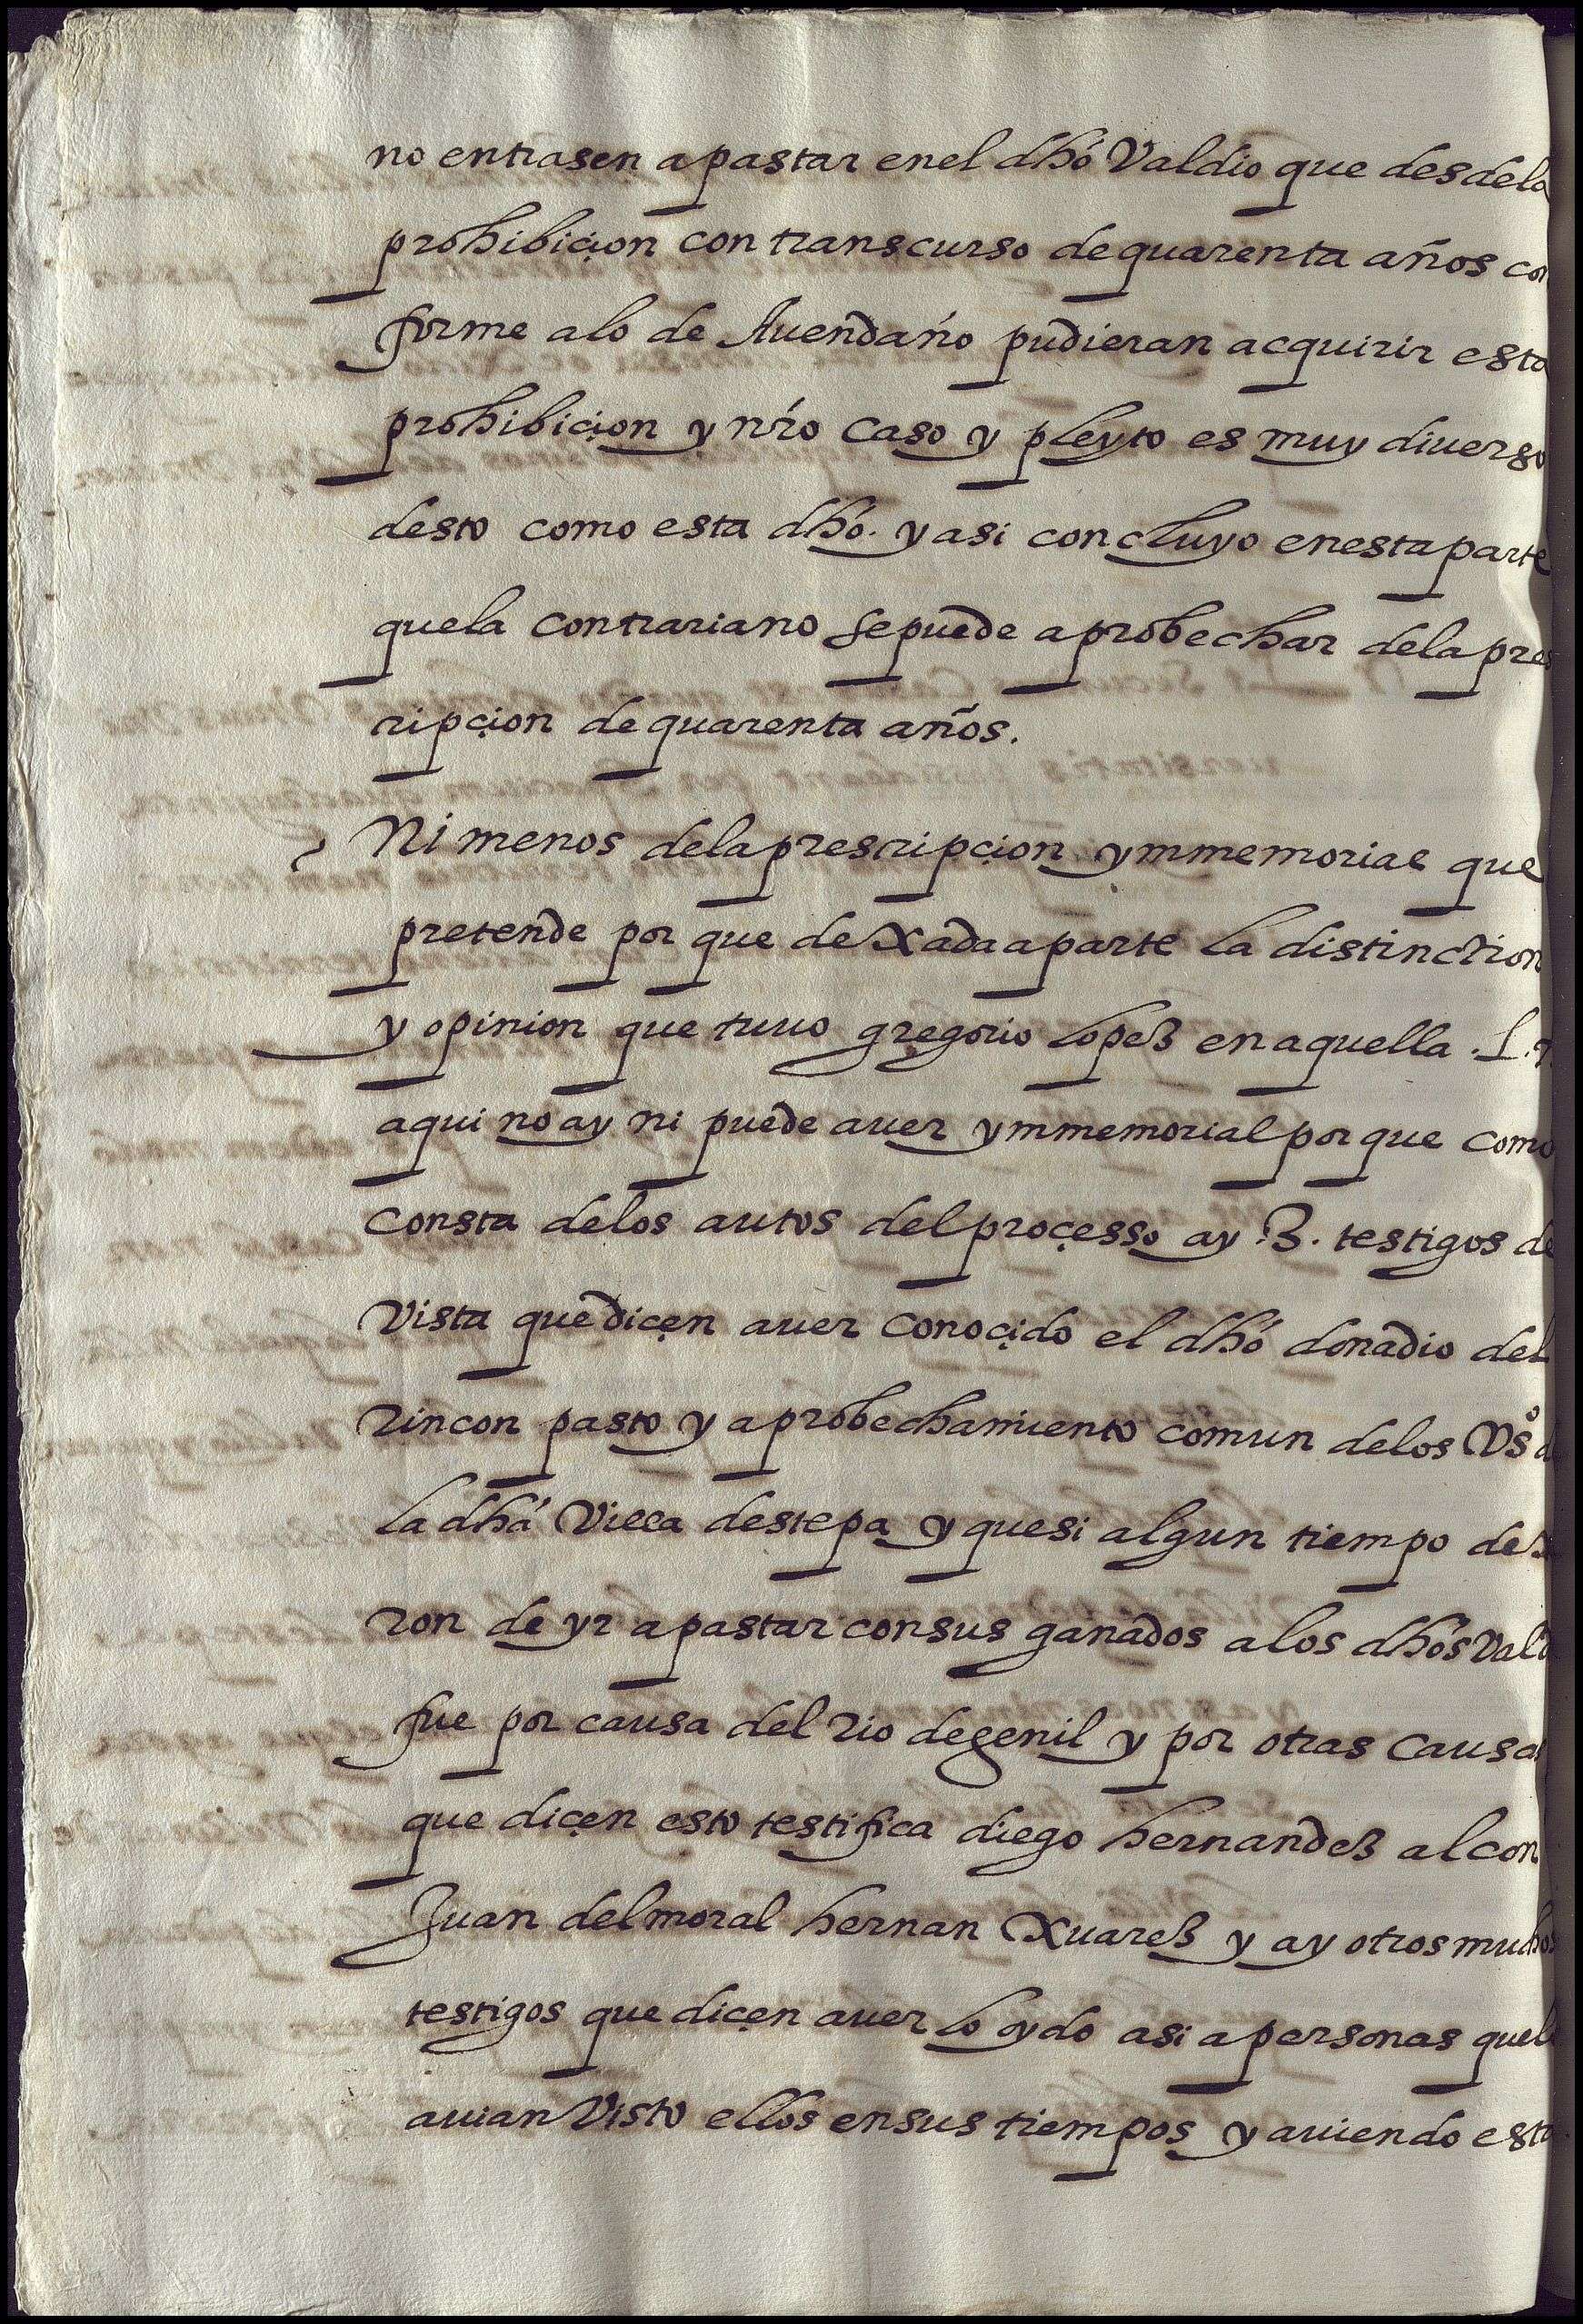 no entrasen a pastar en el dhó Valdio que desde la
prohibiçion con transcurso de quarenta años con
forme a lo de Auendaño pudieran acquirir esta
prohibiçion y nŕo caso y pleyto es muy diuerso
desto como esta dhó. y asi concluyo en esta parte
que la contraria no se puede aprobechar de la pres
cripçion de quarenta años.
Ni menos de la prescripçion ymmemorial que
pretende por que dexada aparte la distinction
y opinion que tuuo gregorio lopez en aquella .l. 7.
aqui no ay ni puede auer ymmemorial por que como
consta de los autos del proçesso ay .3. testigos de
Vista que diçen auer conoçido el dhó donadio del
rincon pasto y aprobechamiento comun de los Vsº de
la dhá Villa destepa y que si algun tiempo dexa
ron de yr a pastar con sus ganados a los dhós Vald
fue por causa del rio de genil y por otras causas
que diçen esto testifica diego hernandez alcon
Juan del moral hernan Xuarez y ay otros muchos
testigos que diçen auer lo oydo asi a personas que lo
auian Visto ellos en sus tiempos y auiendo esto